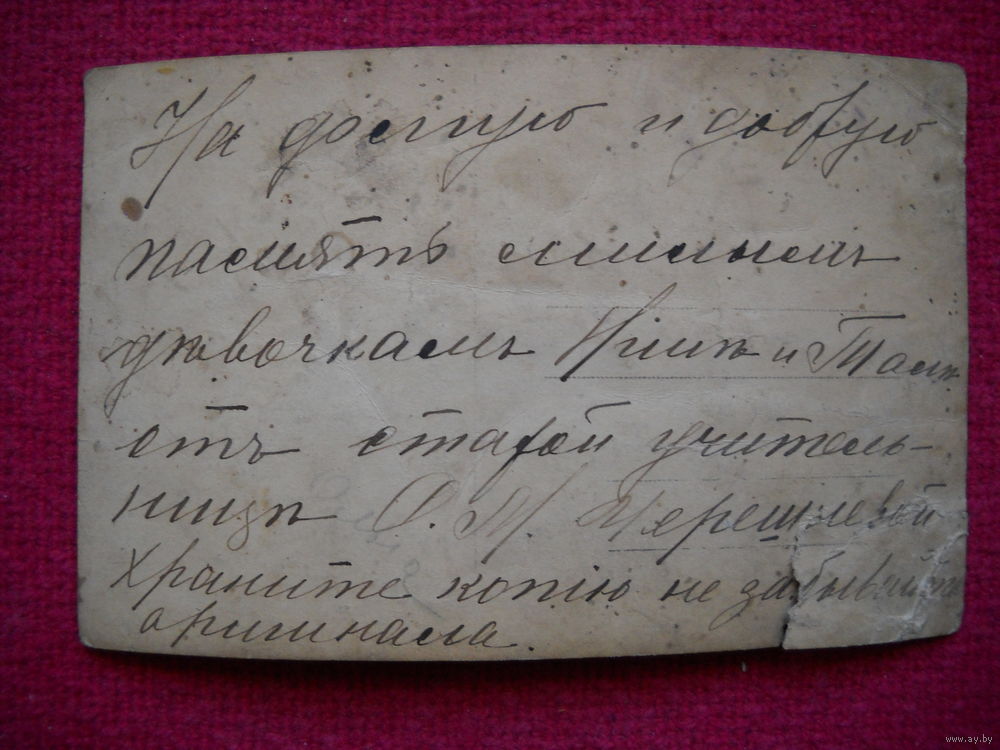 На долгую и добрую
память милымъ
дѣвочкамъ Нинѣ и Тамѣ
отъ старой учитель-
ницѣ О. М.
Храните копію не забывайте
оригинала.
www.ay.by